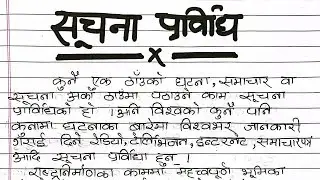 सूचना प्रविधि
x
कुनै एक ठाउँको घटना, समाचार वा
सूचना अर्को ठाउँमा पठाउने काम सूचना
प्रविधिको हो । अनि विश्वको कुनै पनि
कुनामा घटनाका बारेमा विश्वभर जानकारी
गराई दिने रेडियो, टेलिभिजन, इन्टरनेट, समाचारपत्र
आदि सूचना प्रविधी हुन् ।
राष्ट्रनिर्माणको काममा महत्वपूर्ण भूमिका